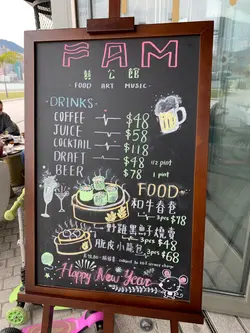 FAM
藝公館
FOOD ART MUSIC
DRINKS
COFFEE $48
JUICE $58
COCKTAIL $118
DRAFT $48 1/2 pint
BEER $78 1 pint
FOOD
和牛春卷
3pcs $78
野雞黑豚燒賣
3pcs $48
脆皮小籠包
3pcs $68
subject to 10% service charge
Happy New Year